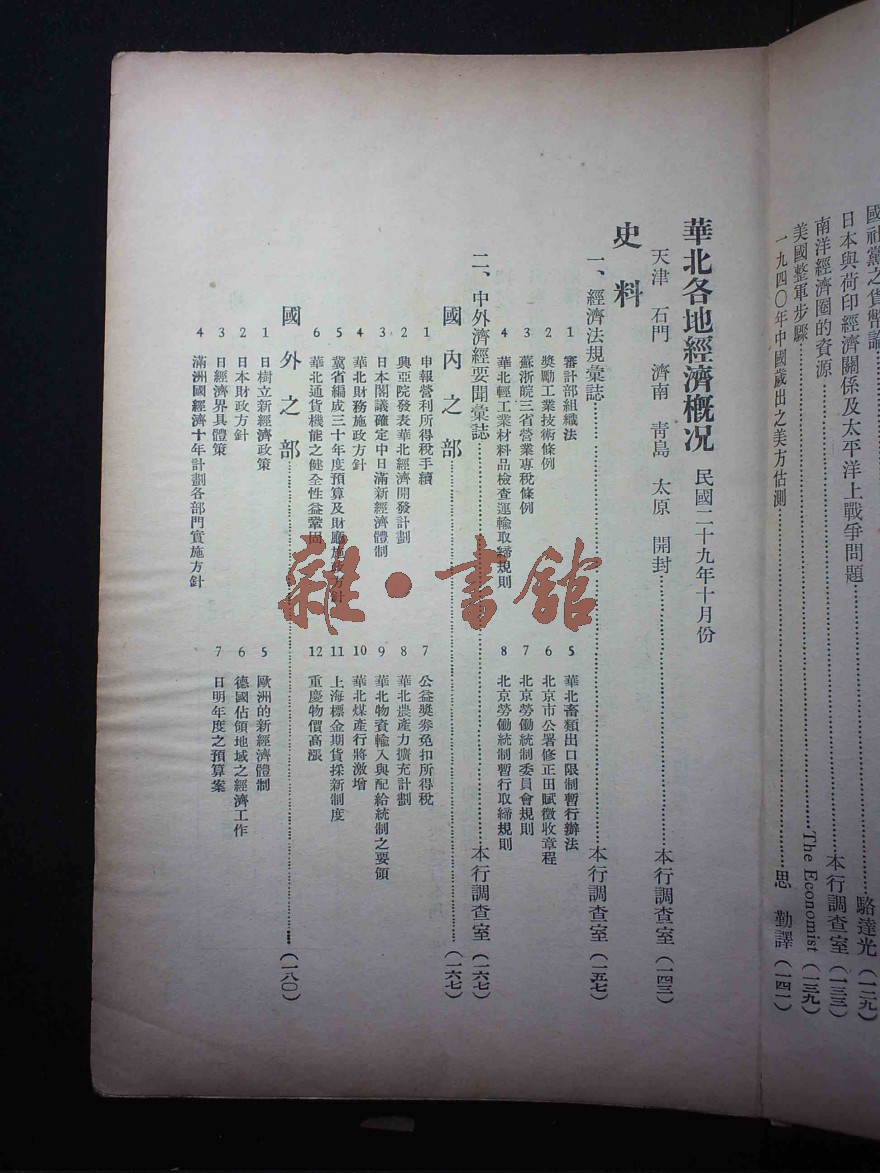 國社黨之貨幣論……駱達光(一二九)
日本與荷印經濟關係及太平洋上戰爭問題
南洋經濟圈的資源……本行調查室(一三三)
美國整軍步驟……The Economist(一三九)
一九四〇年中國歲出之美方估測……思勤譯(一四一)
華北各地經濟概況 民國二十九年十月份
天津 石門 濟南 青島 太原 開封……本行調查室(一四三)
史料
一、經濟法規彙誌……本行調查室(一五七)
1 審計部組織法
2 獎勵工業技術條例
3 蘇浙皖三省營業專稅條例
4 華北輕工業材料品檢查運輸取締規則
5 華北畜類出口限制暫行辦法
6 北京市公署修正田賦徵收章程
7 北京勞働統制委員會規則
8 北京勞働統制暫行取締規則
二、中外濟經要聞彙誌……本行調查室(一六七)
國內之部……(一六七)
1 申報營利所得稅手續
2 興亞院發表華北經濟開發計劃
3 日本閣議確定中日滿新經濟體制
4 華北財務施政方針
5 冀省編成三十年度預算及財廳施政方針
6 華北通貨機能之健全性益鞏固
7 公益獎券免扣所得稅
8 華北農產力擴充計劃
9 華北物資輸入與配給統制之要領
10 華北煤產行將激增
11 上海標金期貨採新制度
12 重慶物價高漲
國外之部……(一八〇)
1 日樹立新經濟政策
2 日本財政方針
3 日經濟界具體策
4 滿洲國經濟十年計劃各部門實施方針
5 歐洲的新經濟體制
6 德國佔領地域之經濟工作
7 日明年度之預算案
雜·書館